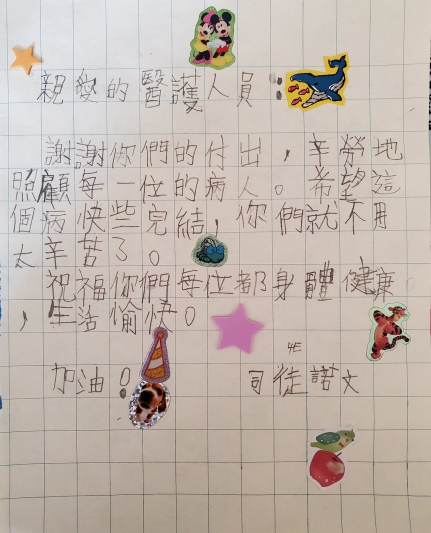 親愛的醫護人員：
謝謝你們的付出，辛勞地
照顧每一位的病人。希望這
個病快些完結，你們就不用
太辛苦了。
祝福你們每位都身體健康
，生活愉快。
4E
加油！ 司徒諾文